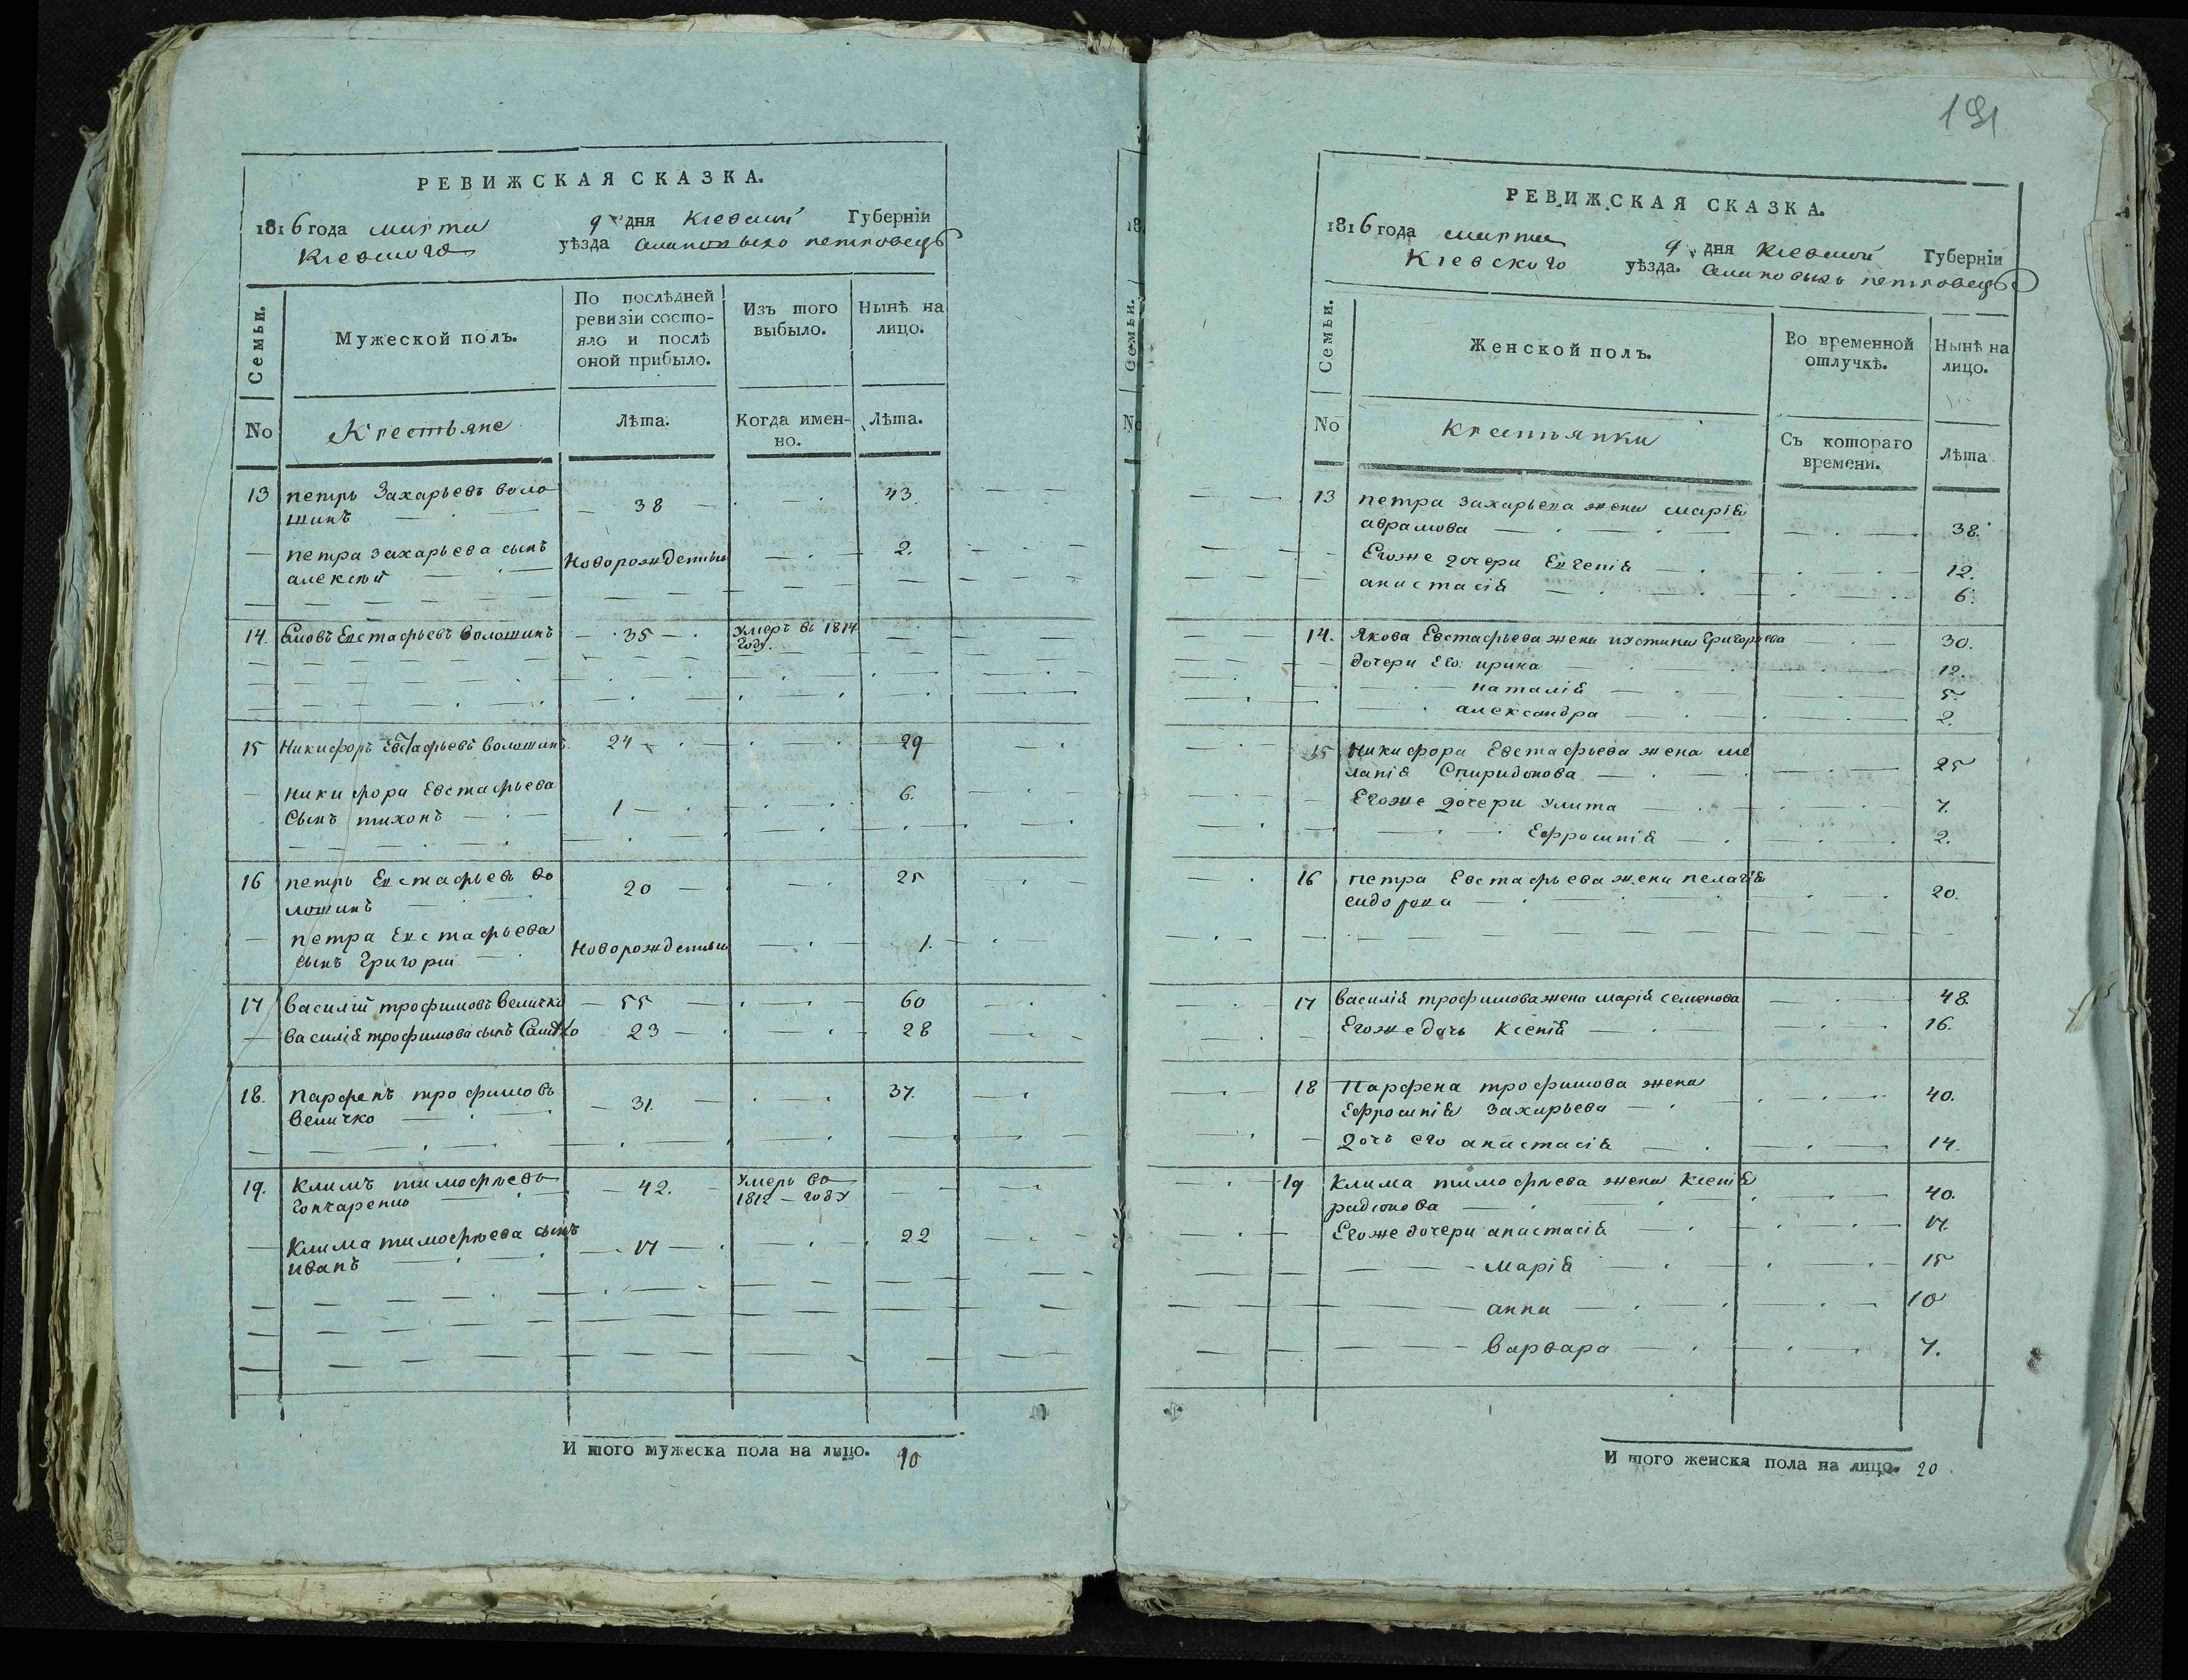 РЕВИЖСКАЯ СКАЗКА.
1816 года марта 9 дня Киевской Губернїи
Киевского уѣзда петровецъ
Семьи.
Мужеской полъ.
По послѣдней ревизїи состо-
яло и послѣ оной прибыло.
Изъ того выбыло.
Нынѣ на лицо.
No
Крестьяне
Лѣта.
Когда имен-
но.
Лѣта.
13 петръ Захарьевъ воло
шинъ 38 43
петра захарьева сынъ
алексѣй Новорожденный 2.
14. Евстафьевъ волошинъ 35 умеръ въ 1814
году.
15 Никифоръ Евстафьевъ волошинъ 24 29
Никифора Евстафьева
сынъ тихонъ 1 6.
16 петръ Евстафьевъ во
лошинъ 20 25
петра Евстафьева
сынъ григорий Новорожденный 1.
17 василий трофимовъ величко 55 60
василия трофимова сынъ 23 28
18. парфенъ трофимовъ
величко 31 37.
19. климъ тимофѣевъ
гончаренко 42. умеръ во
1812 году
клима тимофѣева сынъ
иванъ 17 22
И того мужеска пола на лицо. 10
191
РЕВИЖСКАЯ СКАЗКА.
1816 года марта 9 дня Киевской Губернїи
Киевского уѣзда. петровецъ
Семьи.
Женской полъ.
Во временной отлучкѣ.
Нынѣ на лицо.
No
крестьянки
Съ котораго времени.
Лѣта
13 петра захарьева жена марія
аврамова 38.
Егоже дочери Евгенія 12.
анастасія 6.
14. Якова Евстафьева жена устина григорьева 30.
дочери его: ирина 12.
наталія 5.
александра 2.
15 Никифора Евстафьева жена ме
ланія Спиридонова 25
Егоже дочери улита 7.
Ефросинія 2.
16 петра Евстафьева жена пелагія
сидорова 20.
17 василія трофимова жена марія семенова 48
Егоже дочь ксенія 16.
18 Парфена трофимова жена
Ефросинія захарьева 40.
дочь его анастасія 14.
19 клима тимофѣева жена ксенія
радіонова 40.
Егоже дочери анастасія 17.
марія 15
анна 10
варвара 7.
И того женска пола на лицо. 20